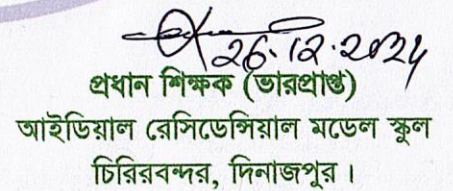 26.12.2024
প্রধান শিক্ষক (ভারপ্রাপ্ত)
আইডিয়াল রেসিডেন্সিয়াল মডেল স্কুল
চিরিরবন্দর, দিনাজপুর।